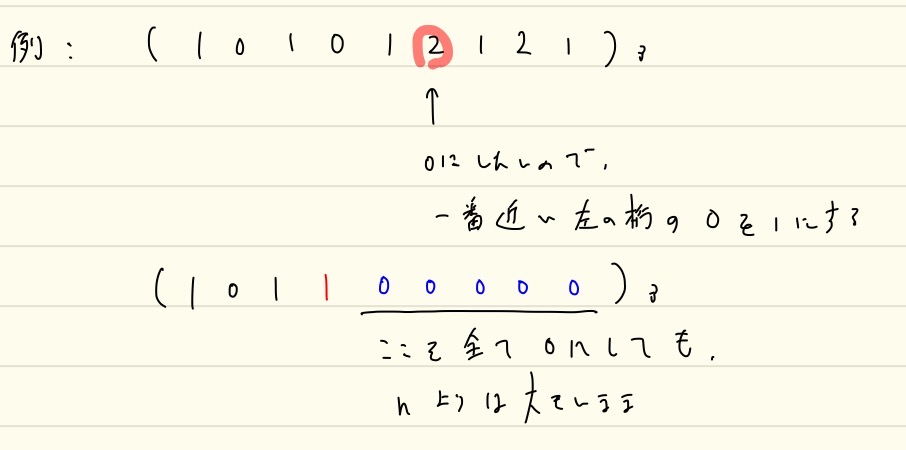 例: (1 0 1 0 1 2 1 2 1)₃
↑
0にしたいので,
一番近い左の桁の0を1にする
(1 0 1 1 0 0 0 0 0)₃
ここを全て0にしても,
nよりは大きいまま